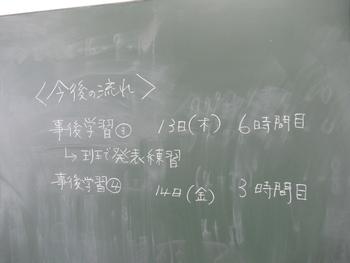 〈今後の流れ〉
事後学習③ 13日(木) 6時間目
↳班で発表練習
事後学習④ 14日(金) 3時間目